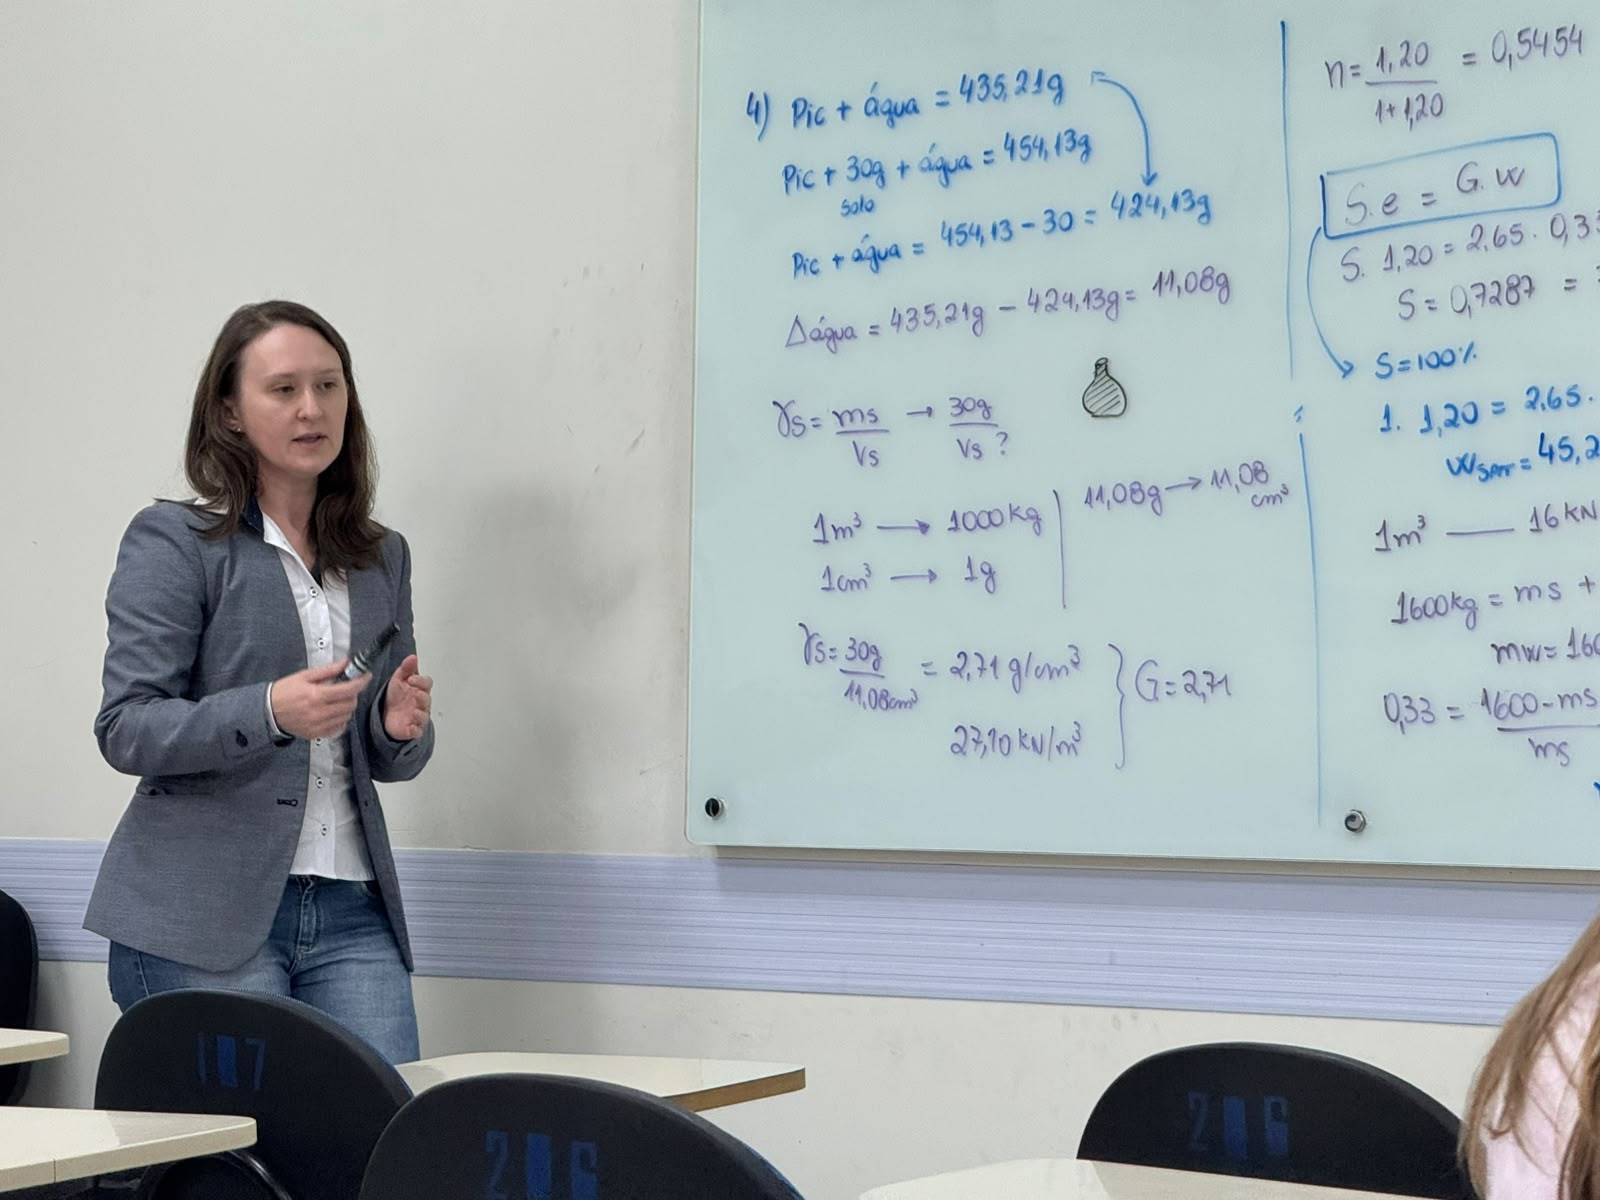 4) Pic + água = 435,21g
Pic + 30g + água = 454,13g
solo
Pic + água = 454,13 - 30 = 424,13g
Δágua = 435,21g - 424,13g = 11,08g
γs = ms/Vs → 30g/Vs ?
1m³ → 1000kg
1cm³ → 1g
11,08g → 11,08 cm³
γs = 30g/11,08cm³ = 2,71 g/cm³
27,10 kN/m³
G = 2,71
n = 1,20/1+1,20 = 0,5454
S.e = G.w
S. 1,20 = 2,65 . 0,33
S = 0,7287 =
→ S = 100%
1. 1,20 = 2,65.
wSAT = 45,2
1m³ — 16 kN
1600kg = ms +
mw = 160
0,33 = 1600 - ms/ms
1 7
2 6
2 6